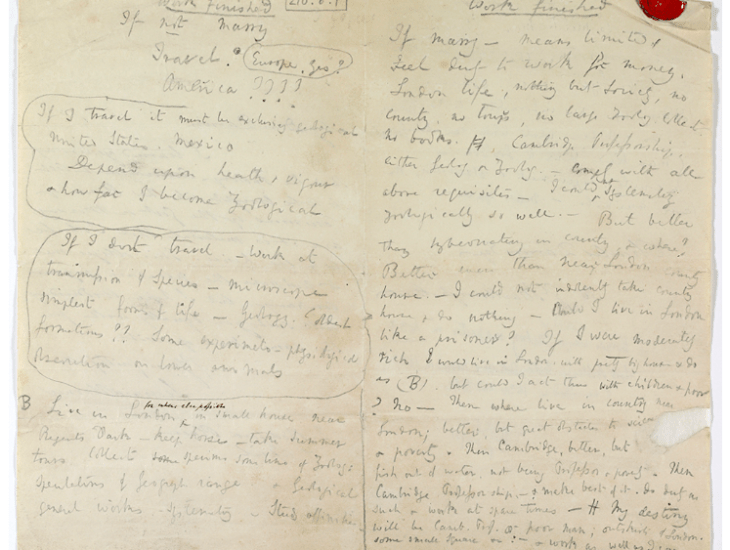 Work finished
If not marry
Travel. ? Europe, yes?
America ????
If I travel it must be exclusively geological
United States Mexico
Depend upon health & vigour
& how far I become Zoological
If I dont travel — Work at
transmission of Species — microscope
simplest forms of life — Geology.
formations ?? Some experiments — physiological
observation on lower animals
B Live in London in small house near
Regents Park — keep horses — take Summer
tours Collect specimens some line of Zoolog:
speculations of Geograph range & Geological
general works — Systematiz — Study affinities
Work finished
If marry — means limited,
Feel duty to work for money.
London life, nothing but Society, no
country, no tours, no large Zoolog. Collect.
no books. Cambridge Professorship,
either Geolog. or Zoolog. — comply with all
above requisites — I could systematiz
zoologically so well. — But better
than hybernating in country, & where?
Better even than near London country
house. — I could not indolently take country
house & do nothing — Could I live in London
like a prisoner? If I were moderately
rich I would live in London, with pretty big house & do
as (B), but could I act thus with children & poor
? No — Then where live in country near
London; better, but great obstacles to
& poverty. Then Cambridge, better, but
fish out of water, not being Professor & poverty. Then
Cambridge Professorship, — & make best of it, do duty as
such & work at spare times — My destiny
will be Camb. Prof. or poor man; outskirts of London,
some small square &c: — & work as well as I